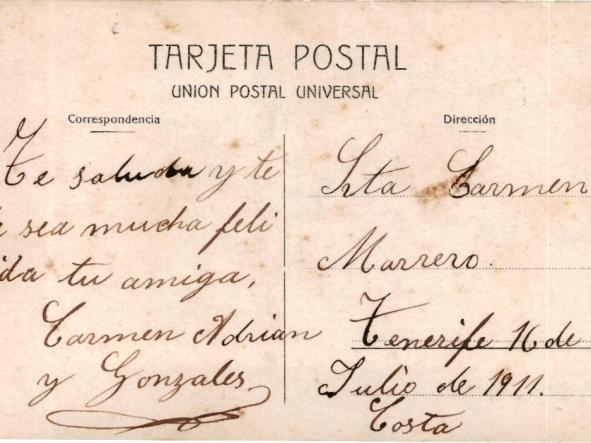 TARJETA POSTAL
UNION POSTAL UNIVERSAL
Correspondencia
Te saluda y te
sea mucha feli
ida tu amiga,
Carmen Adrian
y Gonzales
Dirección
Srta Carmen
Marrero.
Tenerife 16 de
Julio de 1911.
Costa